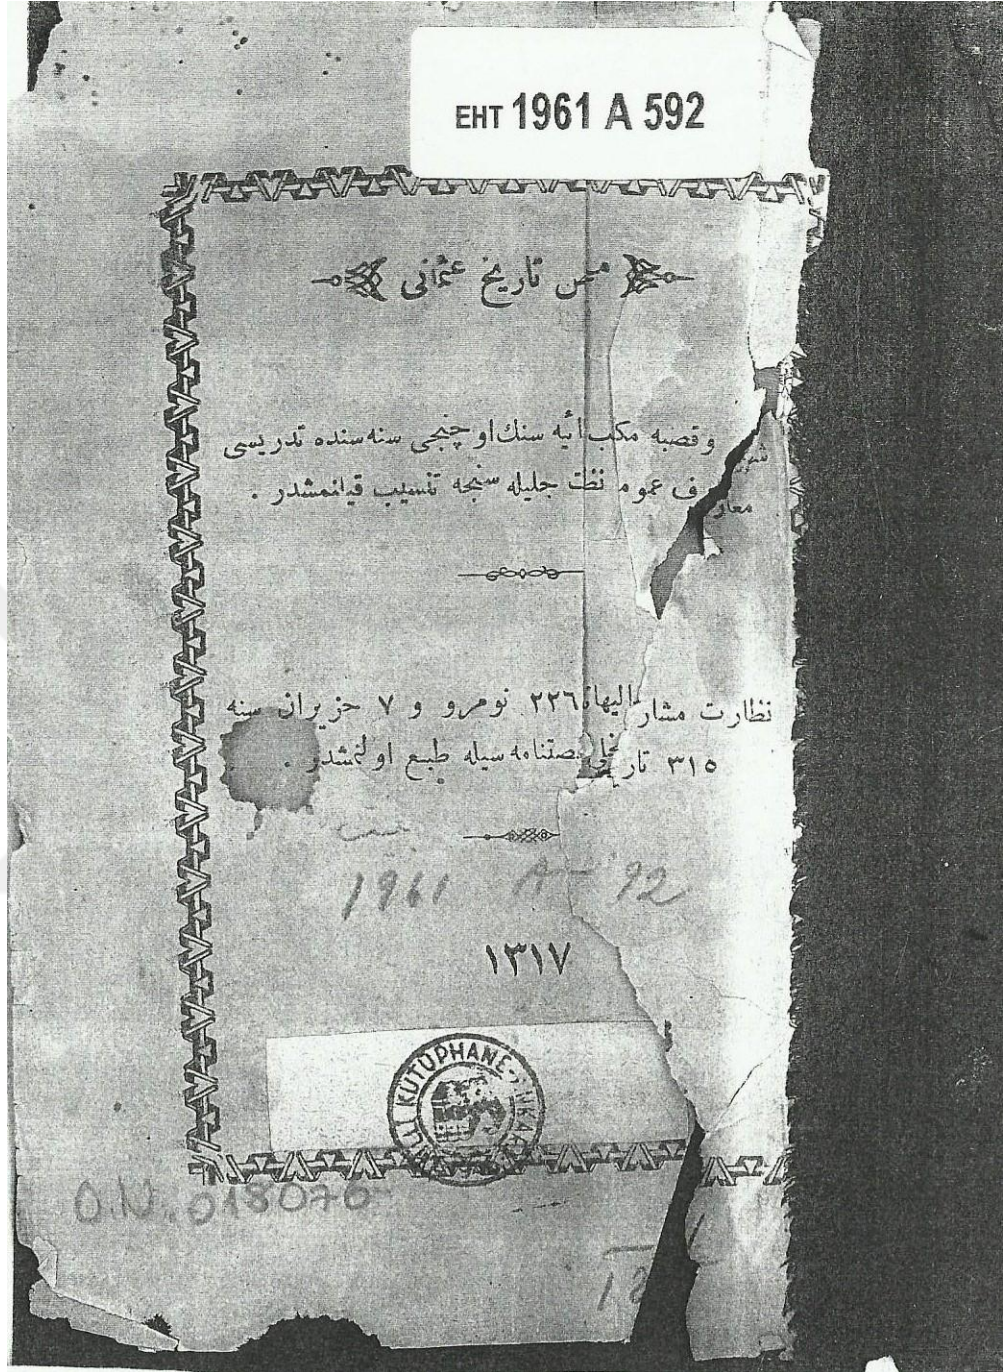 EHT 1961 A 592
تاريخ عثمانى
و قصبه مكتب ائيه سنك او چنجى سنه سنده تدريسى
معارف عموم جليله سنجه تنسيب قيلنمشدر .
نظارت مشار اليهانك ٢٢٦ نومرو و ٧ حزيران سنه
٣١٥ تاريخلى صتنامه سيله طبع اولنمشدر .
1961 A- 92
١٣١٧
KÜTÜPHANE
O.N. 018076